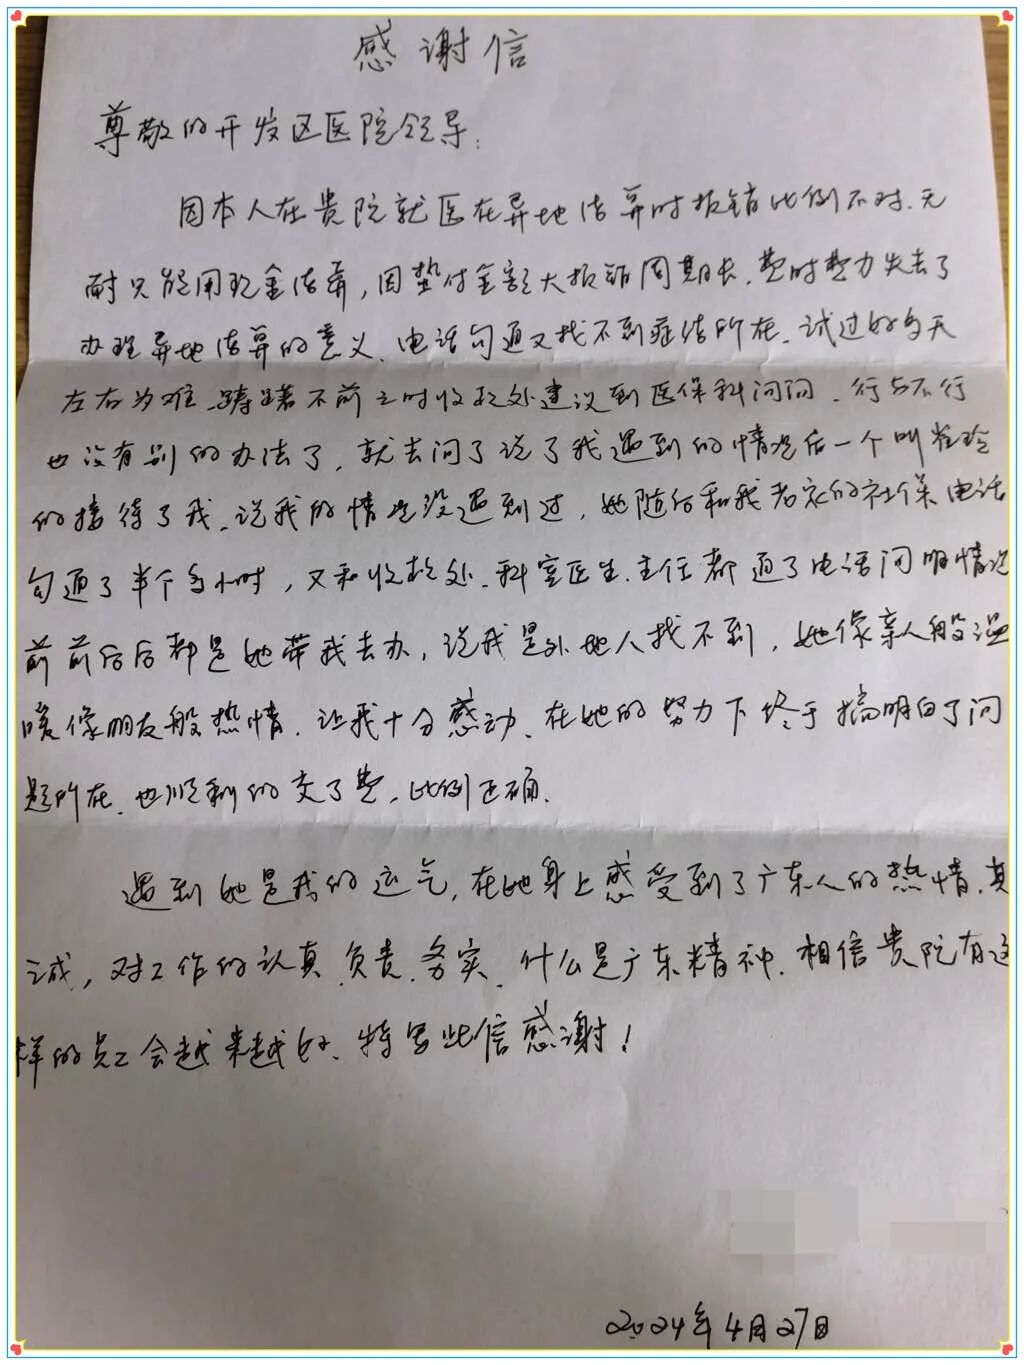 感谢信
尊敬的开发区医院领导:
因本人在贵院就医在异地结算时报销比例不对、无
耐只能用现金结算,因垫付金额大报销周期长、费时费力失去了
办理异地结算的意义、电话勾通又找不到症结所在、试过好多天
左右为难、踌躇不前之时收款处建议到医保科问问、行与不行
也没有别的办法了,就去问了说了我遇到的情况后一个叫
的接待了我、说我的情况没遇到过,她随后和我老家的社保电话
勾通了半个多小时,又和收款处、科室医生、主任都通了电话问明情况
前前后后都是她带我去办,说我是外地人找不到,她像亲人般温
暖像朋友般热情、让我十分感动、在她的努力下终于搞明白了问
题所在、也顺利的交了费,比例正确.
遇到她是我的运气,在她身上感受到了广东人的热情、真
诚,对工作的认真、负责、务实、什么是广东精神、相信贵院有这
样的员工会越来越好、特写此信感谢!
2024年4月27日